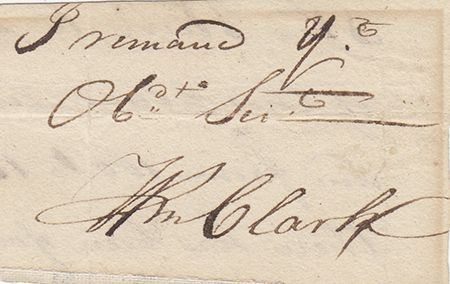 I remain Yr
Obdt. Sert
Wm Clark